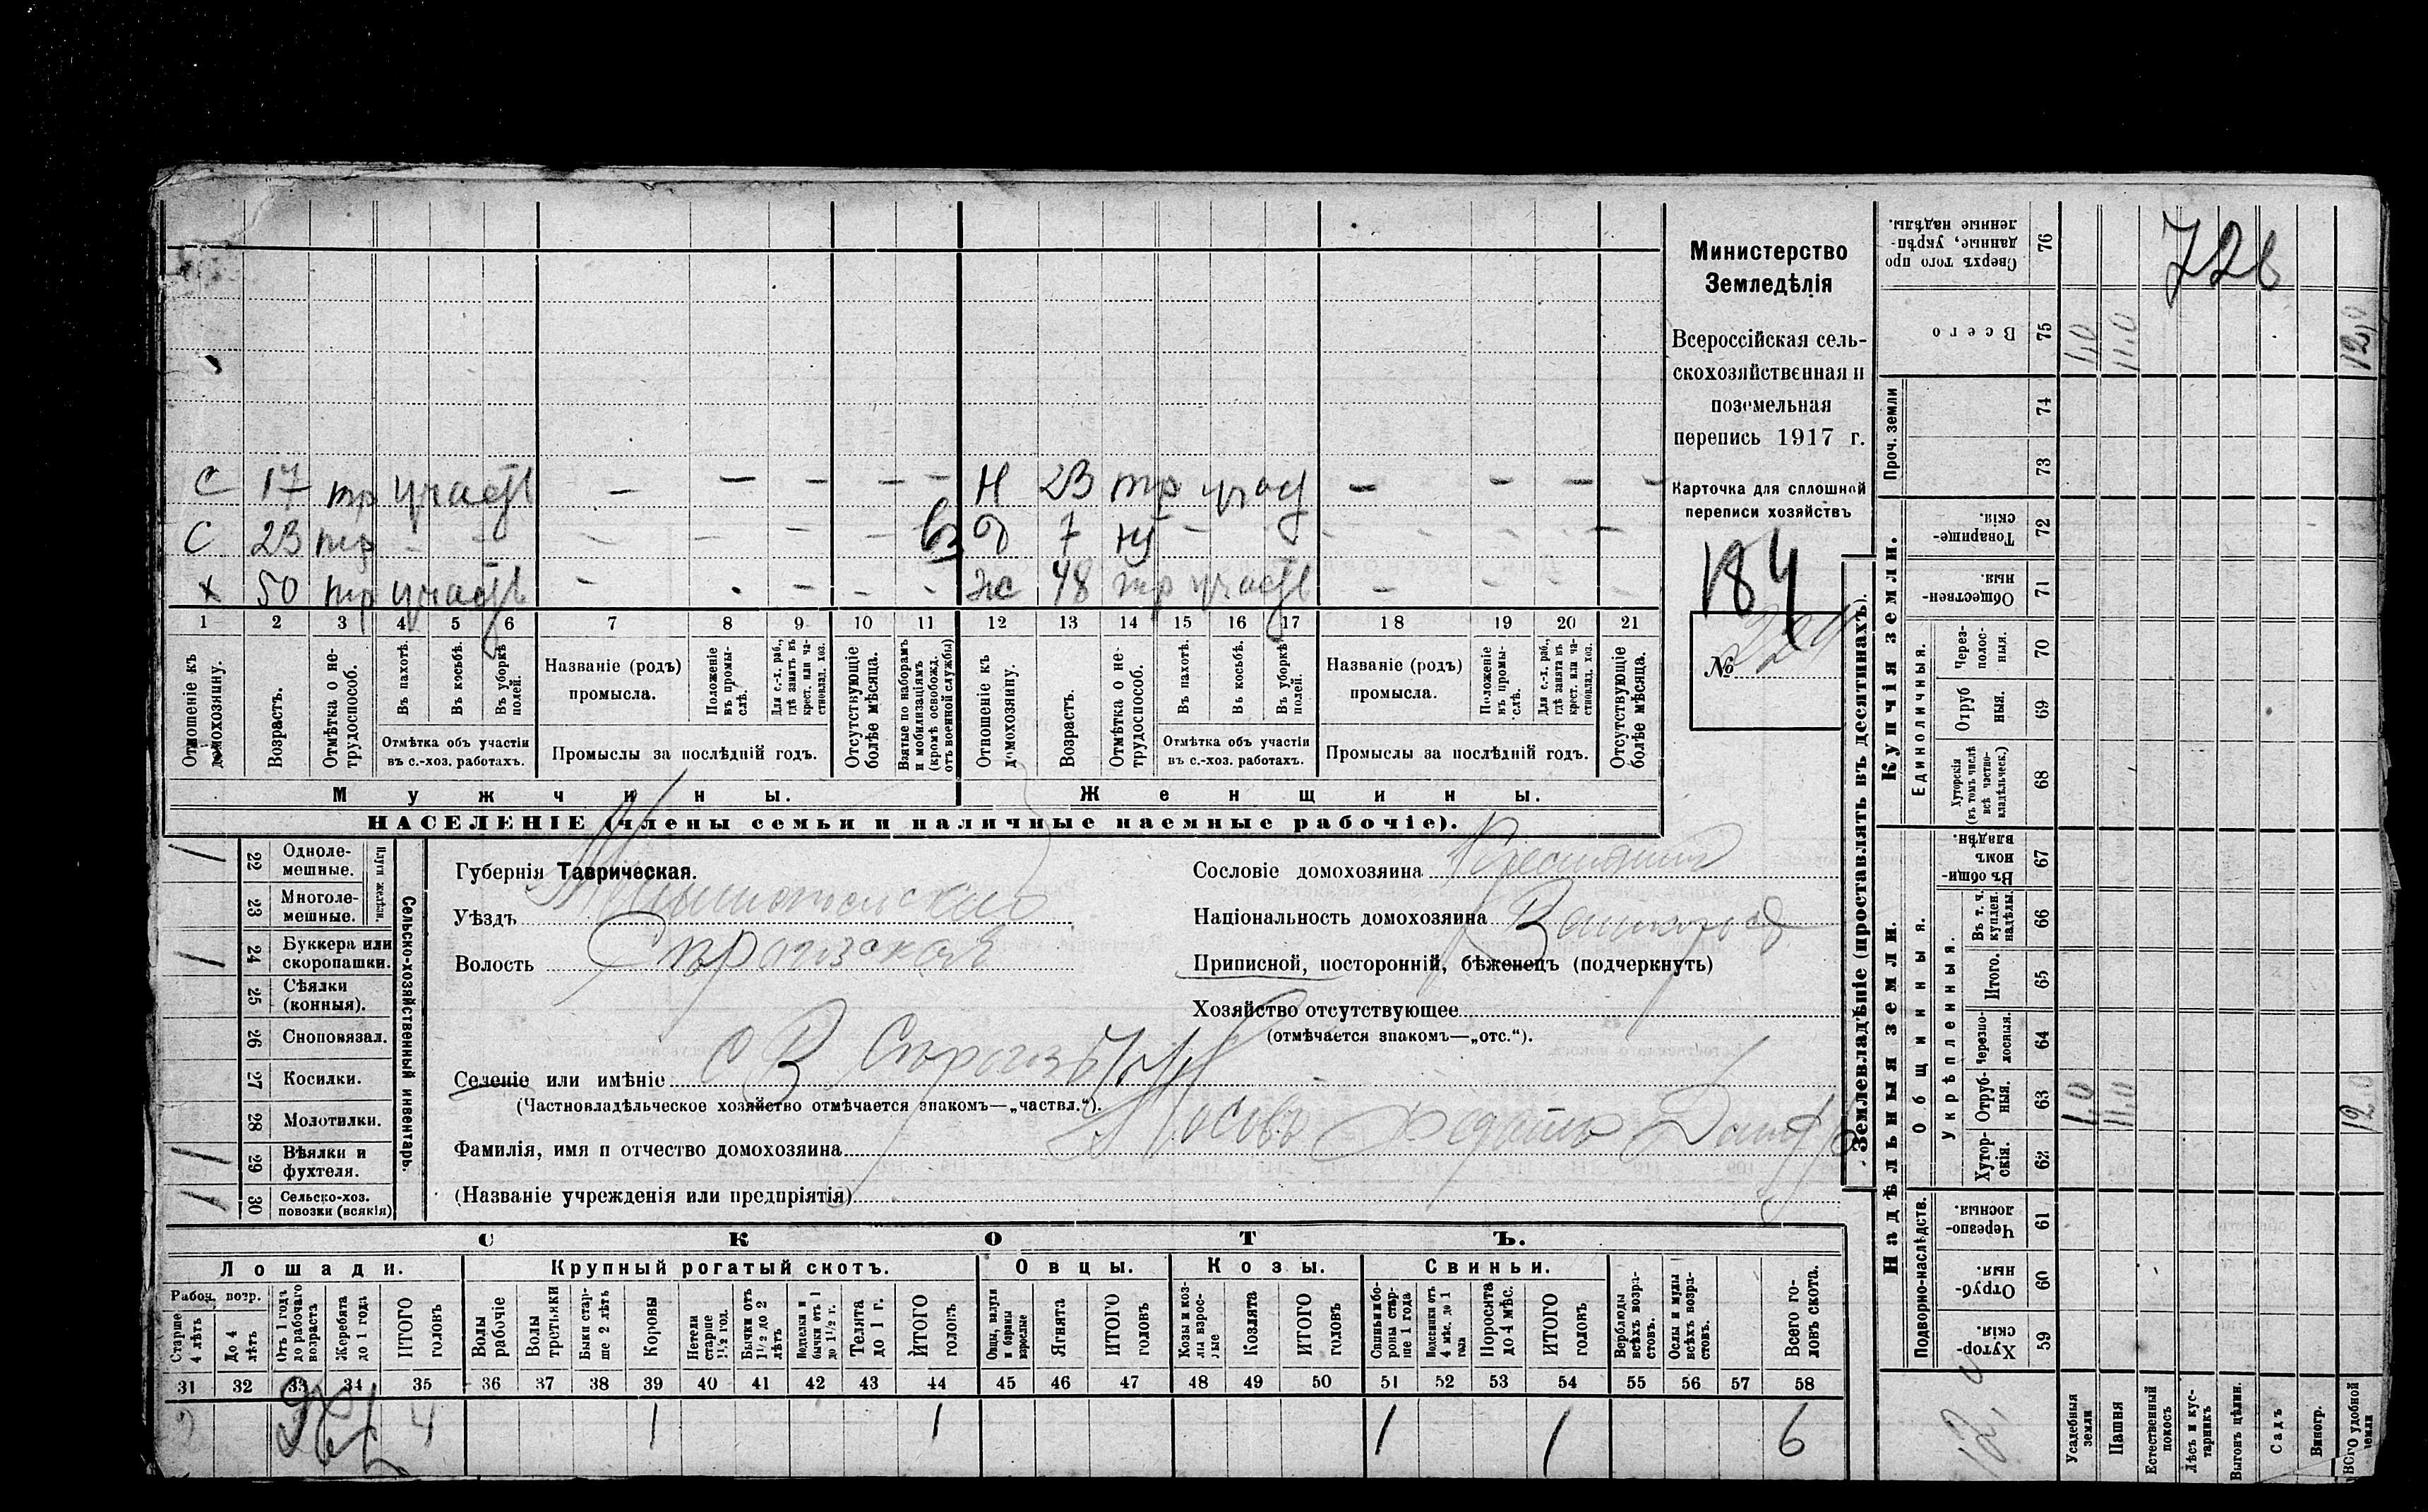 Министерство
Земледѣлія
Всероссійская сель-
скохозяйственная и
поземельная
перепись 1917 г.
Карточка для сплошной
переписи хозяйствъ
184
№
С 17 тр участв — — — — — Н 23 тр участ — — — —
С 23 тр - - - — — — — Вз 7 - - - — — — —
х 50 тр участв — — — — ж 48 тр участв — — — —
1 2 3 4 5 6 7 8 9 10 11 12 13 14 15 16 17 18 19 20 21
Отношеніе къ домохозяину.
Возрастъ.
Отмѣтка о нетрудоспособ.
Въ пахотѣ.
Въ косьбѣ.
Въ уборкѣ полей.
Отмѣтка объ участіи
въ с.-хоз. работахъ.
Названіе (родъ)
промысла.
Положеніе въ промыслѣ.
Для с.-х. раб., гдѣ занятъ въ крест. или частновлад. хоз.
Промыслы за послѣдній годъ.
Отсутствующіе болѣе мѣсяца.
Взятые по наборамъ и мобилизаціямъ (кромѣ освобожд. отъ военной службы)
Отношеніе къ домохозяину.
Возрастъ.
Отмѣтка о нетрудоспособ.
Въ пахотѣ.
Въ косьбѣ.
Въ уборкѣ полей.
Отмѣтка объ участіи
въ с.-хоз. работахъ.
Названіе (родъ)
промысла.
Положеніе въ промыслѣ.
Для с.-х. раб., гдѣ занята въ крест. или частновлад. хоз.
Промыслы за послѣдній годъ.
Отсутствующіе болѣе мѣсяца.
Мужчины.
Женщины.
НАСЕЛЕНІЕ (члены семьи и наличные наемные рабочіе).
Сельско-хозяйственный инвентарь.
Плуги желѣзн.
1 22 Одноле-
мешные.
23 Многоле-
мешные.
1 24 Буккера или
скоропашки.
25 Сѣялки
(конныя).
26 Сноповязал.
27 Косилки.
28 Молотилки.
1 1 29 Вѣялки и
фухтеля.
1 1 30 Сельско-хоз.
повозки (всякія)
Губернія Таврическая.
Уѣздъ
Волость
Сословіе домохозяина Крестьянинъ
Національность домохозяина
Приписной, посторонній, бѣженецъ (подчеркнуть)
Хозяйство отсутствующее
(отмѣчается знакомъ—„отс.“).
Селеніе или имѣніе
(Частновладѣльческое хозяйство отмѣчается знакомъ—„частвл.“).
Фамилія, имя и отчество домохозяина
(Названіе учрежденія или предпріятія)
СКОТЪ.
Лошади. Крупный рогатый скотъ. Овцы. Козы. Свиньи.
Рабоч. возр.
Старше 4 лѣтъ
До 4 лѣтъ
Отъ 1 года до рабочаго возраста
Жеребята до 1 года
ИТОГО головъ
Волы рабочіе
Волы третьяки
Быки старше 2 лѣтъ
Коровы
Нетели старше 1½ год.
Бычки отъ 1½ до 2 лѣтъ
Подтелки и бычки отъ 1 до 1½ г.
Телята до 1 г.
ИТОГО головъ
Овцы, валухи и бараны взрослые
Ягнята
ИТОГО головъ
Козы и козлы взрослые
Козлята
ИТОГО головъ
Свиньи и бороны старше 1 года
Подсвинки отъ 4 мѣс. до 1 года
Поросята до 4 мѣс.
ИТОГО головъ
Верблюды всѣхъ возрастовъ.
Ослы и мулы всѣхъ возрастовъ.
Всего головъ скота.
31 32 33 34 35 36 37 38 39 40 41 42 43 44 45 46 47 48 49 50 51 52 53 54 55 56 57 58
2 4 1 1 1 1 6
Землевладѣніе (проставлять въ десятинахъ).
72в
Сверхъ того проданные, укрѣпленные надѣлы. 76
Всего 75 1,0 11,0 12,0
Проч. земли
74
73
Купчія земли.
Товарищескія. 72
Общественныя 71
Единоличныя.
Черезполосныя. 70
Отрубныя. 69
Хуторскія (въ томъ числѣ всѣ частновладѣльческ.) 68
Надѣльныя земли.
Общинныя.
Въ общинномъ владѣн. 67
Укрѣпленныя.
Въ т. ч. куплен. надѣлы. 66
Итого. 65
Черезполосныя. 64
Отрубныя. 63 1,0 11,0 12,0
Хуторскія. 62
Подворно-наслѣдств.
Черезполосныя. 61
Отрубныя. 60
Хуторскія 59
Усадебныя земли
Пашня
Естественный покосъ
Лѣсъ и кустарникъ
Выгонъ цѣлин.
Садъ
Виногр.
ВСЕГО удобной земли